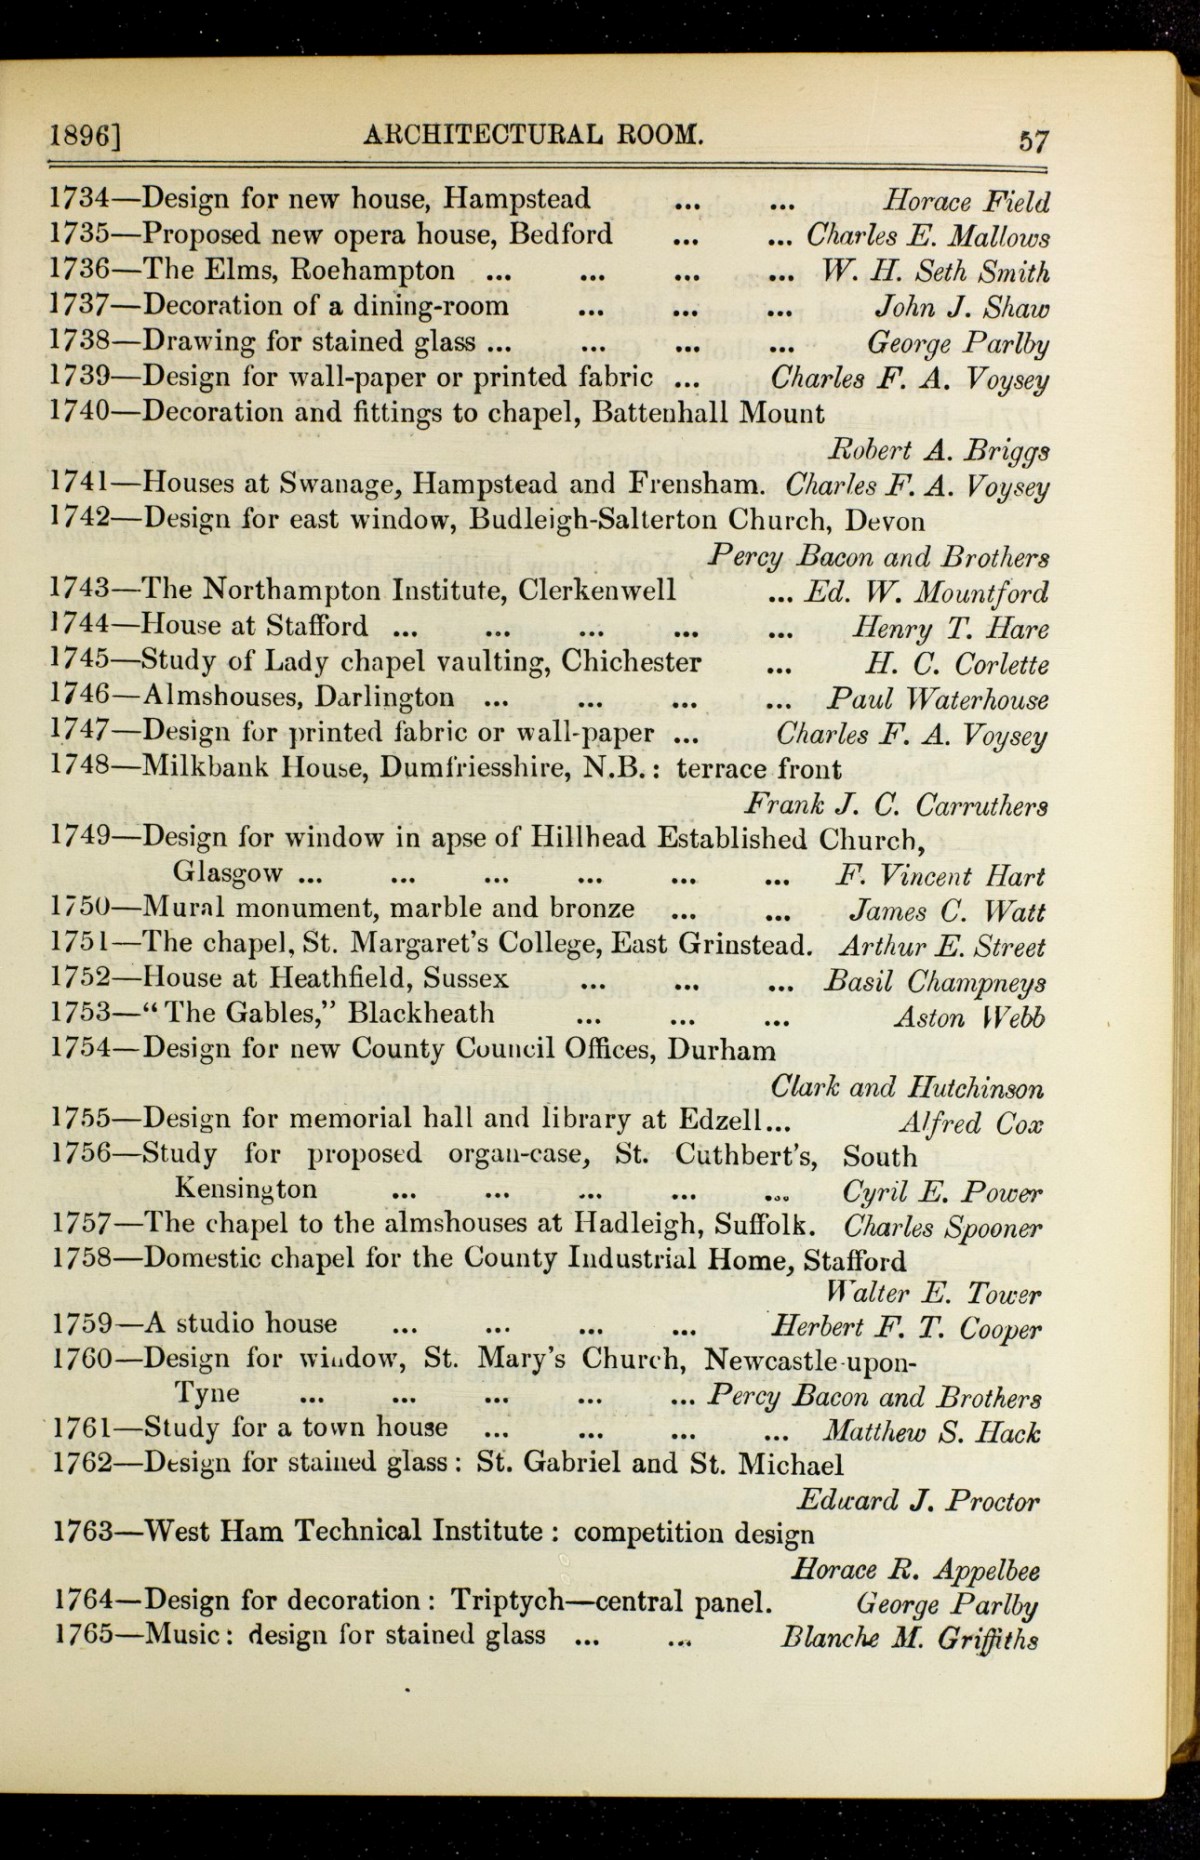 1896] ARCHITECTURAL ROOM. 57
1734—Design for new house, Hampstead ... ... Horace Field
1735—Proposed new opera house, Bedford ... ... Charles E. Mallows
1736—The Elms, Roehampton ... ... ... ... W. H. Seth Smith
1737—Decoration of a dining-room ... ... ... John J. Shaw
1738—Drawing for stained glass ... ... ... ... George Parlby
1739—Design for wall-paper or printed fabric ... Charles F. A. Voysey
1740—Decoration and fittings to chapel, Battenhall Mount
Robert A. Briggs
1741—Houses at Swanage, Hampstead and Frensham. Charles F. A. Voysey
1742—Design for east window, Budleigh-Salterton Church, Devon
Percy Bacon and Brothers
1743—The Northampton Institute, Clerkenwell ... Ed. W. Mountford
1744—House at Stafford ... ... ... ... ... Henry T. Hare
1745—Study of Lady chapel vaulting, Chichester ... H. C. Corlette
1746—Almshouses, Darlington ... ... ... ... Paul Waterhouse
1747—Design for printed fabric or wall-paper ... Charles F. A. Voysey
1748—Milkbank House, Dumfriesshire, N.B.: terrace front
Frank J. C. Carruthers
1749—Design for window in apse of Hillhead Established Church,
Glasgow ... ... ... ... ... ... F. Vincent Hart
1750—Mural monument, marble and bronze ... ... James C. Watt
1751—The chapel, St. Margaret's College, East Grinstead. Arthur E. Street
1752—House at Heathfield, Sussex ... ... ... Basil Champneys
1753—"The Gables," Blackheath ... ... ... Aston Webb
1754—Design for new County Council Offices, Durham
Clark and Hutchinson
1755—Design for memorial hall and library at Edzell... Alfred Cox
1756—Study for proposed organ-case, St. Cuthbert's, South
Kensington ... ... ... ... ... Cyril E. Power
1757—The chapel to the almshouses at Hadleigh, Suffolk. Charles Spooner
1758—Domestic chapel for the County Industrial Home, Stafford
Walter E. Tower
1759—A studio house ... ... ... ... Herbert F. T. Cooper
1760—Design for window, St. Mary's Church, Newcastle-upon-
Tyne ... ... ... ... ... Percy Bacon and Brothers
1761—Study for a town house ... ... ... ... Matthew S. Hack
1762—Design for stained glass: St. Gabriel and St. Michael
Edward J. Proctor
1763—West Ham Technical Institute: competition design
Horace R. Appelbee
1764—Design for decoration: Triptych—central panel. George Parlby
1765—Music: design for stained glass ... ... Blanche M. Griffiths